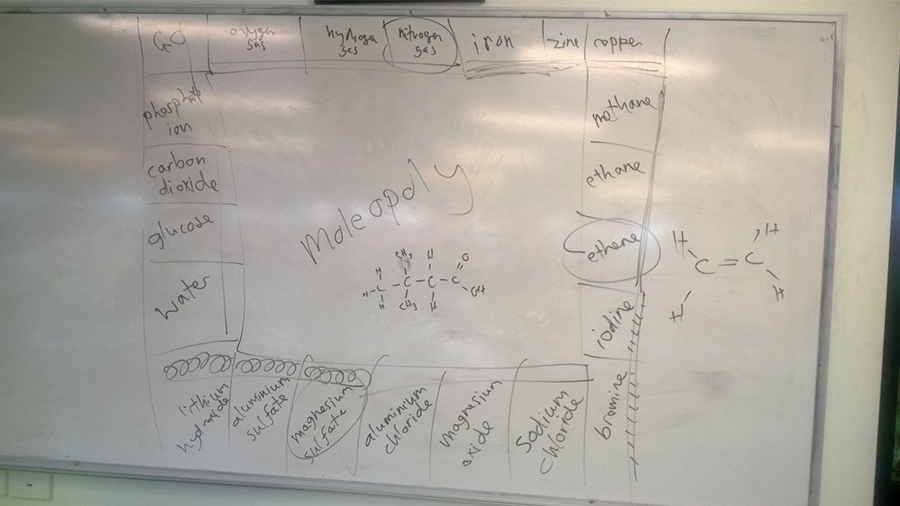 GO
oxygen
gas
hydrogen
gas
nitrogen
gas
iron
zinc
copper
phosphate
ion
carbon
dioxide
glucose
water
Moleopoly
methane
ethane
ethene
iodine
bromine
H CH3 H O
H - C - C - C - C OH
H CH3 H
H H
C = C
H H
lithium
hydroxide
aluminium
sulfate
magnesium
sulfate
aluminium
chloride
magnesium
oxide
sodium
chloride